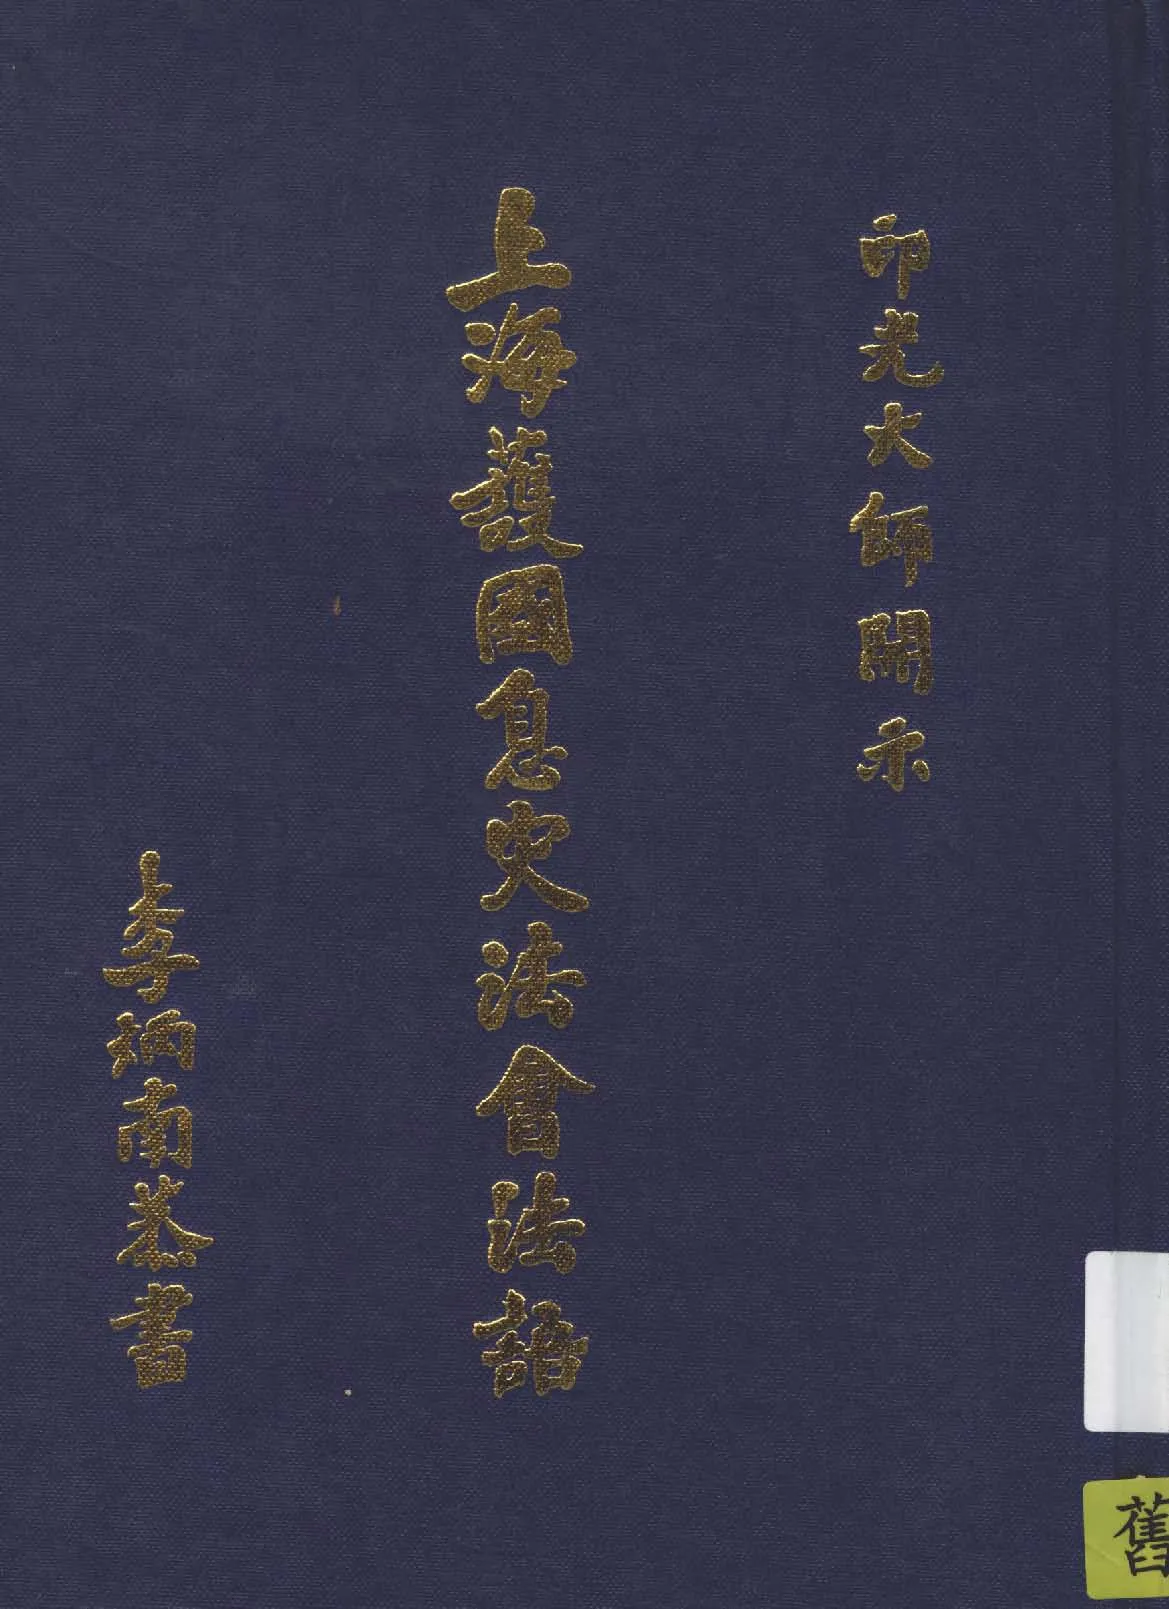 印光大師開示
上海護國息災法會法語
李炳南恭書
舊